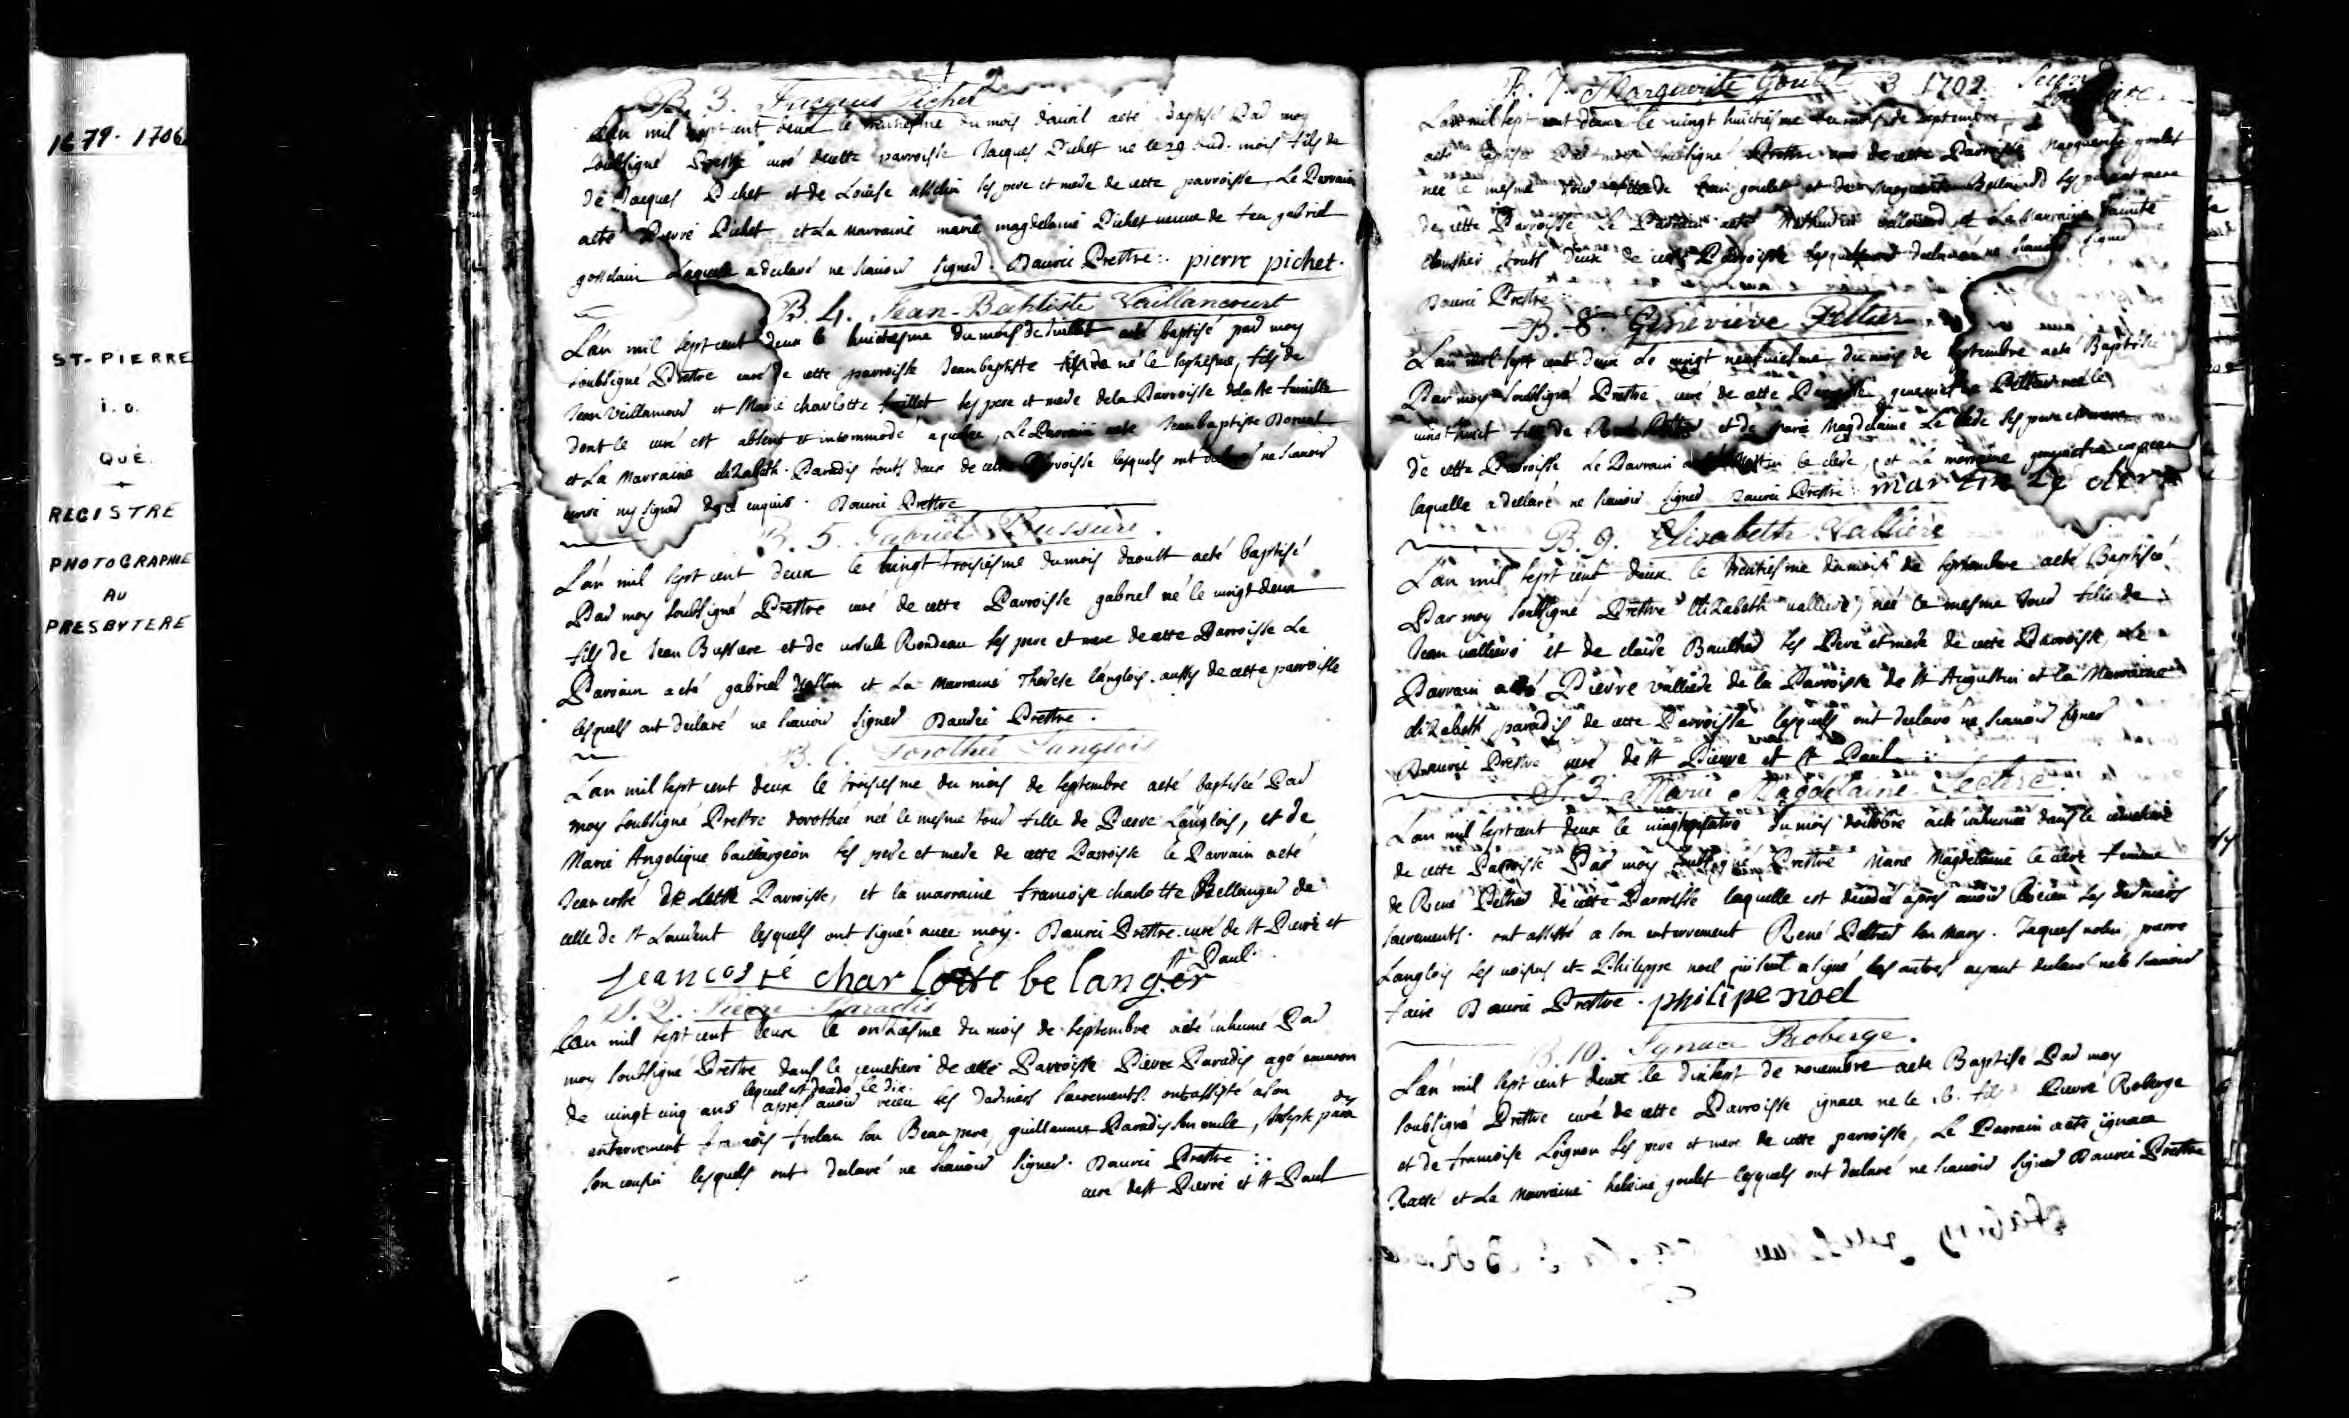 1679-1706
ST-PIERRE
I. O.
QUÉ.
REGISTRE
PHOTOGRAPHIE
AU
PRESBYTERE
B. 3. Jacques Pichet
L'an mil sept cent deux le trentiesme du mois d'auril aeté Baptisé Par moy
soubsigné Prestre curé de cette parroisse Jacques Pichet né le 29 dud. mois fils de
de Jacques Pichet et de Louise asselin ses pere et mere de cette parroisse, Le Parrain
aeté Pierre Pichet et La marraine marie magdelaine Pichet veuve de feu gabriel
gosselain Laquelle a declaré ne scauoir signer. Dauric Prestre :. pierre pichet.
B. 4. Jean-Baptiste Vaillancourt
L'an mil sept cent deux le huictiesme du mois de Juillet aeté baptisé par moy
soubsigné Prestre curé de cette parroisse Jean baptiste né le septiesme, fils de
Jean Veillancour et Marie charlotte ses pere et mere de la Parroisse de la Ste famille
dont le curé est absent et incommodé a quebec, Le Parrain aeté Jean baptiste
et La Marraine elizabeth Paradis touts deux de cette Parroisse lesquels ont declaré ne scauoir
ny signer de ce enquis. Dauric Prestre
B. 5. Gabriel Bussière.
L'an mil sept cent deux le vingt troisiesme du mois daoust aeté baptisé
Par moy soubsigné Prestre curé de cette Parroisse gabriel né le vingt deux
fils de Jean Bussiere et de ursule Rondeau ses pere et mere de cette Parroisse Le
Parrain aeté gabriel et La Marraine Therese langlois aussy de cette parroisse
lesquels ont declaré ne scauoir signer Dauric Prestre.
B. 6. Dorothée Langlois
L'an mil sept cent deux le troisiesme du mois de septembre aeté baptisée Par
moy soubsigné Prestre dorothée née le mesme Jour fille de Pierre Langlois, et de
Marie Angelique baillargeon ses pere et mere de cette Parroisse le Parrain aeté
Jean costé de cette Parroisse, et la marraine francoise charlotte Bellanger de
celle de St Laurent lesquels ont signé auec moy. Dauric Prestre. curé de St Pierre et
St Paul.
Jean costé charlotte belanger
S. 2. Pierre Paradis
L'an mil sept cent deux le onziesme du mois de septembre aeté inhumé Par
moy soubsigné Prestre dans le cemetiere de cette Parroisse Pierre Paradis agé enuiron
lequel est decedé le dix.
de vingt cinq ans apres auoir receu ses derniers sacrements. ont assisté a son
enterrement francois son Beau pere, guillaume Paradis son oncle, Joseph paradis
son cousin lesquels ont declaré ne scauoir signer. Dauric Prestre :.
curé de St Pierre et St Paul
B. 7. Marguerite Goulet 3 1702.
L'an mil sept cent deux le vingt huictiesme du mois de septembre,
aeté baptisée Par moy soubsigné Prestre curé de cette Parroisse Marguerite goulet
née le mesme Jour fille de goulet et de Marguerite ses pere et mere
de cette Parroisse Le Parrain aeté et La Marraine sainte
cloustier touts deux de cette Parroisse lesquels ont declaré ne scauoir signer
Dauric Prestre :.
B. 8. Geneviève Peltier
L'an mil sept cent deux Le vingt neufuiesme du mois de septembre aeté Baptisée
Par moy soubsigné Prestre, curé de cette Parroisse, Peltier née le
vingt huict fille de René et de marie Magdelaine Le clerc ses pere et mere
de cette Parroisse Le Parrain aeté Martin le clerc, et La marraine
laquelle a declaré ne scauoir signer Dauric Prestre martin le clerc
B. 9. Elisabeth Vallière
L'an mil sept cent deux le trentiesme du mois de septembre aeté Baptiséé
Par moy soubsigné Prestre Elizabeth valliere, née le mesme Jour fille de
Jean valliere et de claire ses Pere et mere de cette Parroisse, Le
Parrain aeté Pierre valliere de la Parroisse de St Augustin et La Marraine
elizabeth paradis de cette Parroisse lesquels ont declaré ne scauoir signer
Dauric Prestre curé de St Pierre et St Paul :.
S. 3. Marie Magdelaine Leclerc.
L'an mil sept cent deux le vingt du mois d'octobre aeté inhumée dans le cemetiere
de cette Parroisse Par moy soubsigné Prestre Marie Magdelaine le clerc femme
de René Peltier de cette Parroisse laquelle est decedée apres auoir Receu ses derniers
sacrements. ont assisté a son enterrement René Peltier son Mary. Jaques nolin, pierre
Langlois ses voisins et Philippe noel qui seul a signé les autres ayant declaré ne le scauoir
faire Dauric Prestre. philipe noel
B. 10. Ignace Roberge.
L'an mil sept cent deux le dixsept de nouembre aeté Baptisé Par moy
soubsigné Prestre curé de cette Parroisse ignace né le 16. fils Pierre Roberge
et de francoise Loignon ses pere et mere de cette parroisse, Le Parrain aeté ignace
Ratté et La Marraine helaine goulet lesquels ont declaré ne scauoir signer Dauric Prestre